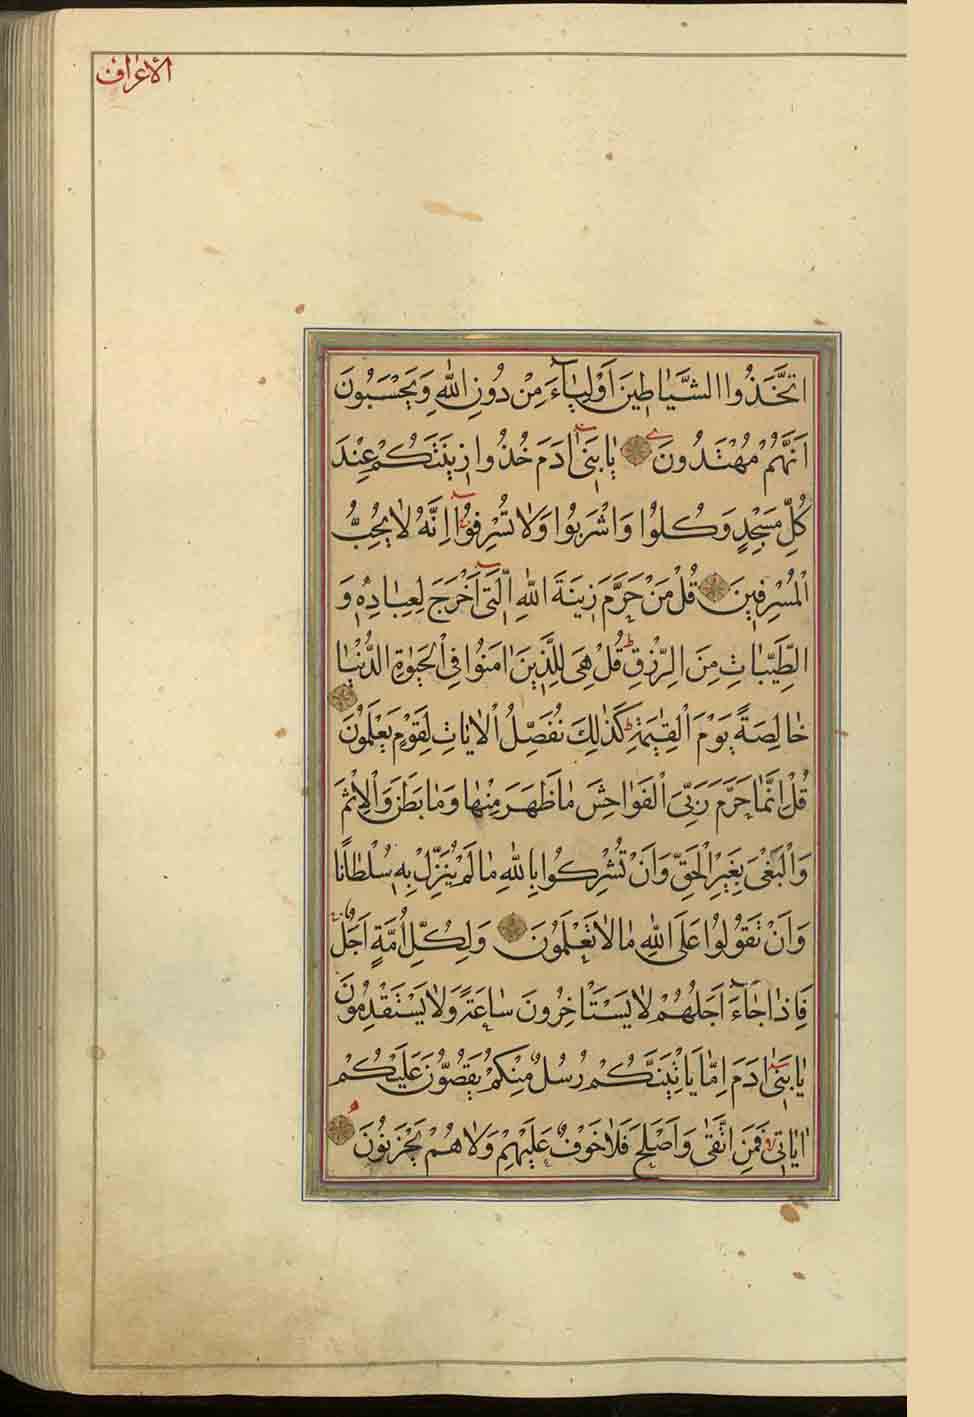 الاعراف
اتَّخَذُوا الشَّيَاطِينَ اَوْلِيَاۤءَ مِنْ دُونِ اللّٰهِ وَيَحْسَبُونَ
اَنَّهُمْ مُهْتَدُونَ يَابَنِىۤ اٰدَمَ خُذُوا زِينَتَكُمْ عِنْدَ
كُلِّ مَسْجِدٍ وَكُلُوا وَاشْرَبُوا وَلَا تُسْرِفُوۤا اِنَّهُ لَا يُحِبُّ
الْمُسْرِفِينَ قُلْ مَنْ حَرَّمَ زِينَةَ اللّٰهِ الَّتِىۤ اَخْرَجَ لِعِبَادِهٖ وَ
الطَّيِّبَاتِ مِنَ الرِّزْقِ قُلْ هِىَ لِلَّذِينَ اٰمَنُوا فِى الْحَيٰوةِ الدُّنْيَا
خَالِصَةً يَوْمَ الْقِيٰمَةِ كَذٰلِكَ نُفَصِّلُ الْاٰيَاتِ لِقَوْمٍ يَعْلَمُونَ
قُلْ اِنَّمَا حَرَّمَ رَبِّىَ الْفَوَاحِشَ مَا ظَهَرَ مِنْهَا وَمَا بَطَنَ وَالْاِثْمَ
وَالْبَغْىَ بِغَيْرِ الْحَقِّ وَاَنْ تُشْرِكُوا بِاللّٰهِ مَا لَمْ يُنَزِّلْ بِهٖ سُلْطَانًا
وَاَنْ تَقُولُوا عَلَى اللّٰهِ مَا لَا تَعْلَمُونَ وَلِكُلِّ اُمَّةٍ اَجَلٌ
فَاِذَا جَاۤءَ اَجَلُهُمْ لَا يَسْتَاْخِرُونَ سَاعَةً وَلَا يَسْتَقْدِمُونَ
يَابَنِىۤ اٰدَمَ اِمَّا يَاْتِيَنَّكُمْ رُسُلٌ مِنْكُمْ يَقُصُّونَ عَلَيْكُمْ
اٰيَاتِى فَمَنِ اتَّقٰى وَاَصْلَحَ فَلَا خَوْفٌ عَلَيْهِمْ وَلَا هُمْ يَحْزَنُونَ